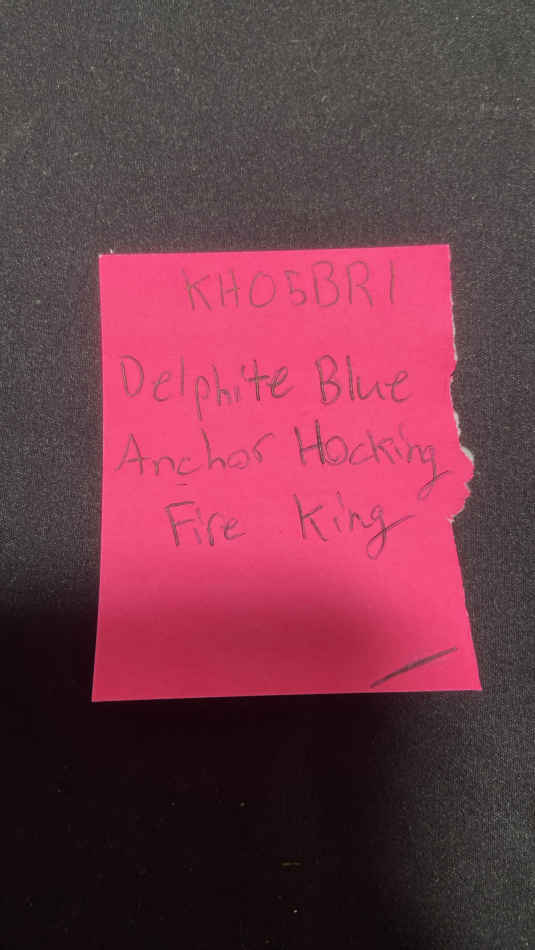 KH05BR1
Delphite Blue
Anchor Hocking
Fire King